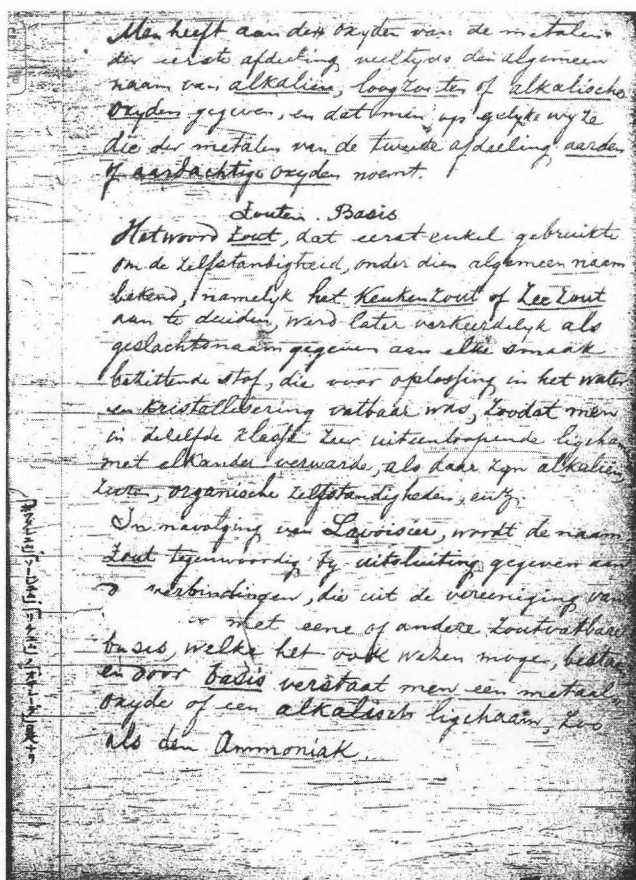 Men heeft aan den oxyden van de metalen
der eerste afdeeling veeltyds den algemeen
naam van alkaliën, loogzouten of alkalische
oxyden gegeven, en dat men, op gelyke wyze
die der metalen van de tweede afdeeling aarden
of aardachtige oxyden noemt.
Zouten. Basis
Het woord Zout, dat eerst enkel gebruikte
om de zelfstandigheid, onder dien algemeen naam
bekend, namelyk het Keukenzout of Zeezout
aan te duiden, werd later verkeerdelyk als
geslachtsnaam gegeven aan elke smaak
bezittende stof, die voor oplossing in het water
en kristallisering vatbaar was, zoodat men
in dezelfde klasse zeer uiteenloopende ligcha
met elkander verwarde, als daar zyn alkaliën
zuren, organische zelfstandigheden, enz.
In navolging van Lavoisier, wordt de naam
Zout tegenwoordig by uitsluiting gegeven aan
verbindingen, die uit de vereeniging van
met eene of andere zoutvatbare
basis, welke het ook wezen moge, bestaa
en door basis verstaat men een metaal
oxyde of een alkalisch ligchaam, zoo
als den Ammoniak